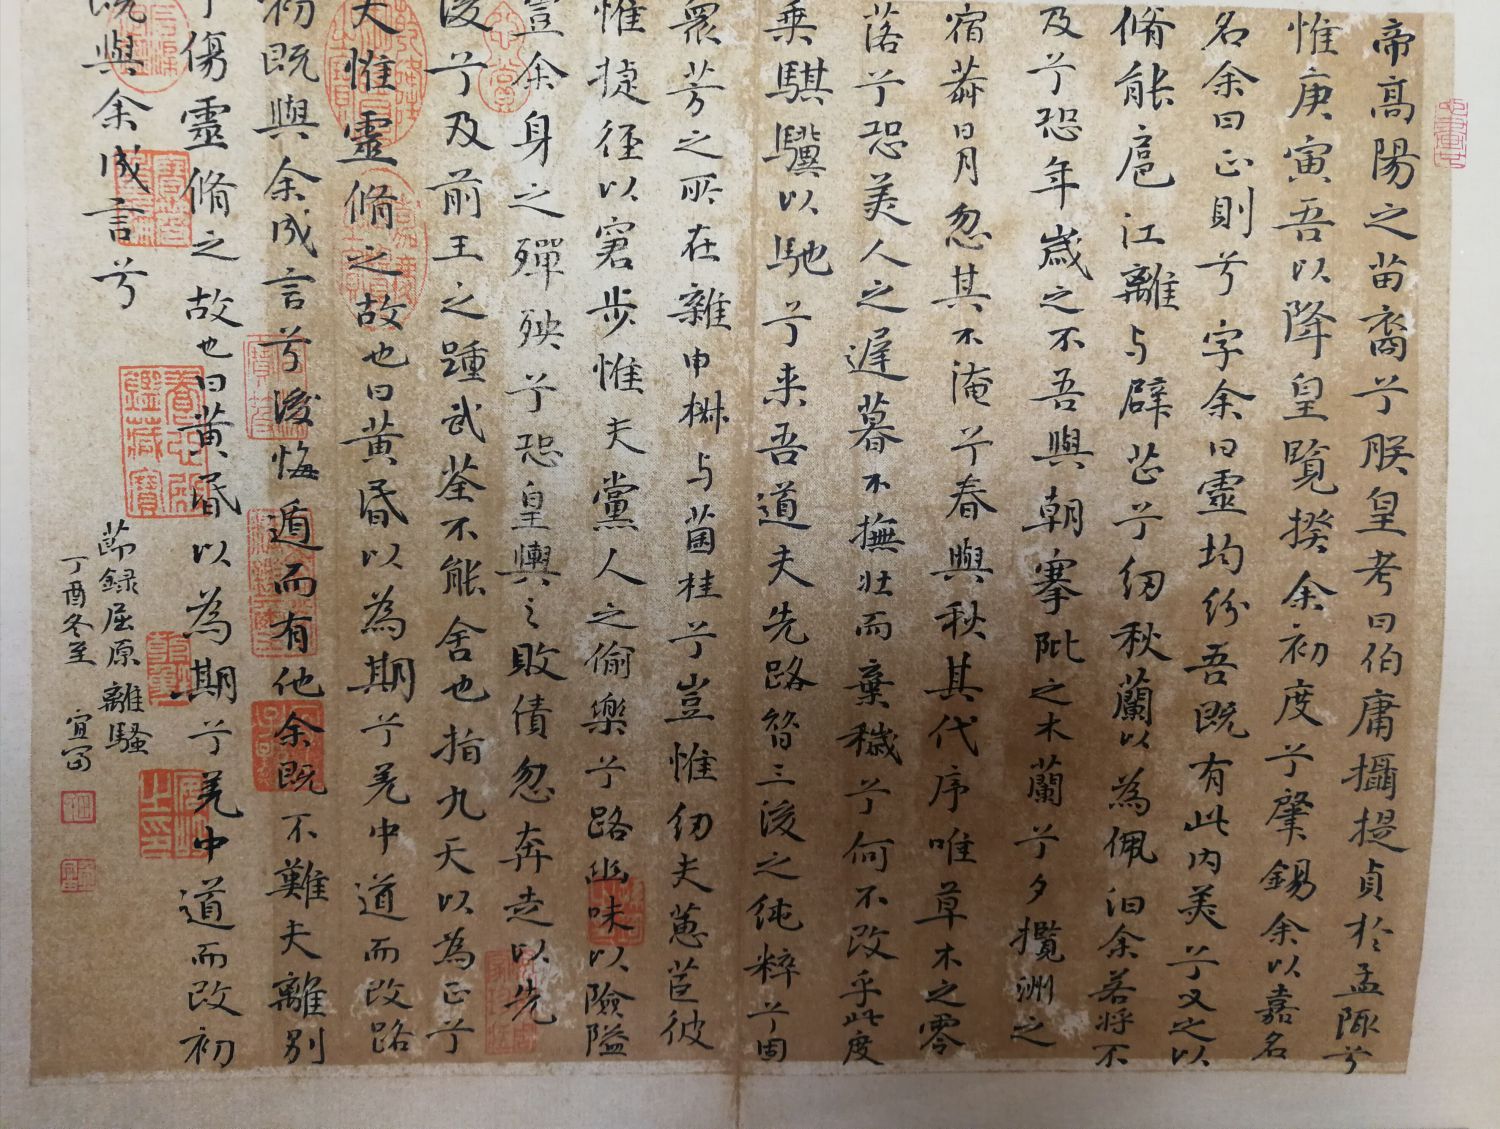 帝高陽之苗裔兮朕皇考曰伯庸攝提貞於孟陬兮
惟庚寅吾以降皇覽揆余初度兮肇錫余以嘉名
名余曰正則兮字余曰靈均紛吾既有此內美兮又之以
脩能扈江離与辟芷兮紉秋蘭以為佩汩余若將不
及兮恐年歲之不吾與朝搴阰之木蘭兮夕攬洲之
宿莽日月忽其不淹兮春與秋其代序唯草木之零
落兮恐美人之遲暮不撫壯而棄穢兮何不改乎此度
乗騏驥以馳兮来吾道夫先路昝三後之純粹兮固
衆芳之所在雜申椒与菌桂兮豈惟紉夫蕙茝彼
惟捷徑以窘步惟夫黨人之偷樂兮路幽昧以險隘
豈余身之殫殃兮恐皇輿之敗債忽奔走以先
後兮及前王之踵武荃不能舍也指九天以為正兮
夫惟靈脩之故也曰黄昏以為期兮羌中道而改路
初既與余成言兮後悔遁而有他余既不難夫離別
兮傷靈脩之故也曰黄昏以為期兮羌中道而改初
既與余成言兮
節録屈原離騷
丁酉冬至 宜